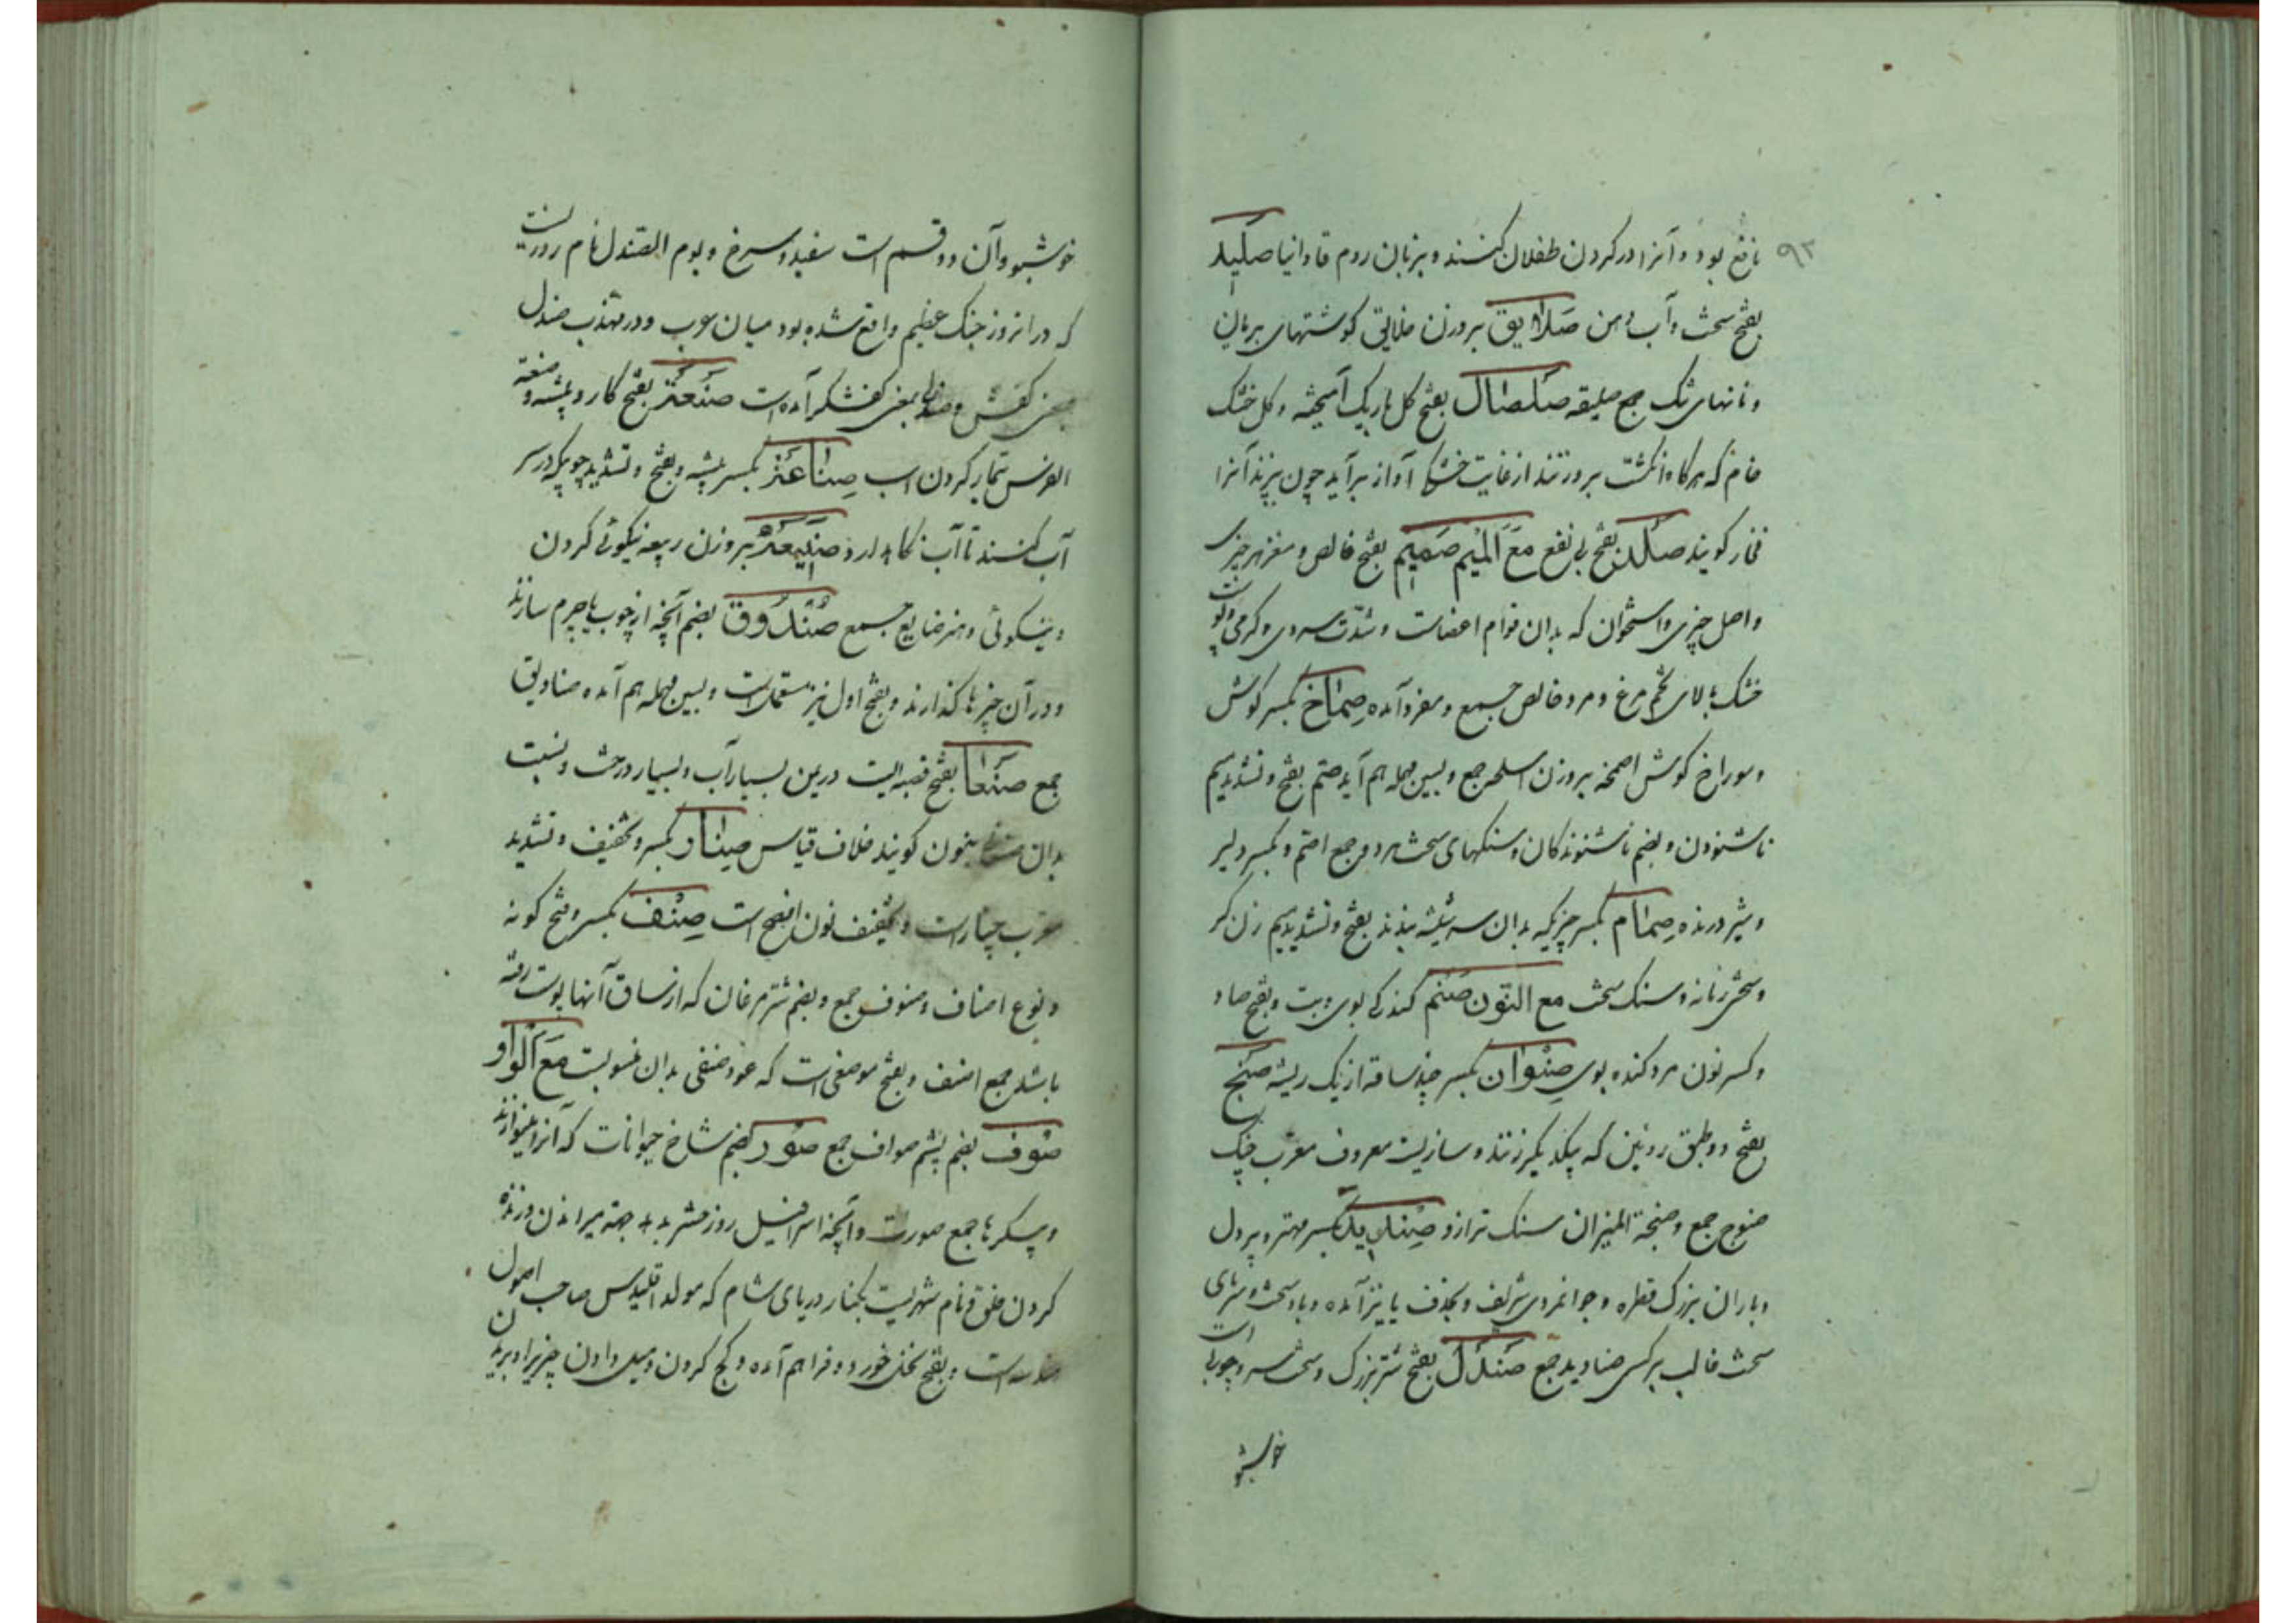 ۹۲
نافع بود و آنرا در گردن طفلان کنند و بزبان روم فاوانیا صَلیِد
بفتح سخت و آب دهن صَلَایِق بروزن خلایق کوشتهای بریان
و نانهای تنک جمع صلیقه صَلصَال بفتح کل باریک آمیخته و کل خشک
خام که هرکاه انکشت برو زنند از غایت خشکی آواز برآید چون بپزند آنرا
فخار کویند صَلد بفتح بی نفع مَعَ المیٖم صَمیِم بفتح خالص و مغز هر چیزی
و اصل چیزی و استخوان که بدان قوام اعضاست و شدّت سردی و کرمی و پوست
خشک بالای تخم مرغ و مرد خالص جمع و مفرد آمده صِمَاخ بکسر کوش
و سوراخ کوش اصمخه بروزن اسلحه جمع و بسین مهمله هم آید صمّ بفتح و تشدید میم
ناشنودن و بضم ناشنوندکان و سنکهای سخت مرد و جمع اصمّ و بکسر دلیر
و شیر درنده صِمَام بکسر چیزیکه بدان سر شیشه بندند بفتح و تشدید میم زن کر
و سختی زمانه و سنک سخت مع النّون صَنَم کندکی بوی و بت و بفتح صاد
و کسر نون مرد کنده بوی صِنْوَان بکسر چند ساقه از یک ریشه صَنْج
بفتح دو طبق رویین که بیکدیگر زنند و سازیست معروف معرّب چنک
صنوج جمع و صنجة المیزان سنک ترازو صِنْدِید بکسر مهتر و پردل
و باران بزرک قطره و جوانمردی شریف و بحذف یا نیز آمده و باد سخت و سرمای
سخت غالب بر کسی صنادید جمع صَندَل بفتح شتر بزرک و سخت سر و چوبی است
خوشبو
خوشبو و آن دو قسم است سفید و سرخ و یوم الصّندل نام روزیست
که در انروز جنک عظیم واقع شده بود میان عرب و در مهذب صندل
بمعنی کفش و صندلی بمعنی کفشکر آمده است صَنْعَة بفتح کار و پیشه و صنعة
الفرس تیمار کردن اسب صِنَاعَة بکسر پیشه و بفتح و تشدید چوبیکه در سر
آب کنند تا آب نکاه دارد صَنیِعَة بروزن ربیعه نیکوئی کردن
و نیکوئی و هنر صنایع جمع صُنْدُوق بضم آنچه از چوب یا چرم سازند
و در آن چیزها کذارند و بفتح اول نیز مستعملست و بسین مهمله هم آمده صنادیق
جمع صَنْعَا بفتح قصبه ایست در یمن بسیار آب و بسیار درخت و نسبت
بدان صنعانی بنون کویند خلاف قیاس صِنَار بکسر و تخفیف و تشدید
معرب چنار است و بتخفیف نون افصح است صِنْف بکسر و فتح کونه
و نوع اصناف و صنوف جمع و بضم شترمرغان که از ساق آنها پوست رفته
باشد جمع اصنف و بفتح موضعی است که عود صنفی بدان منسوبست مَعَ الوَاو
صُوف بضم پشم صواف جمع صُور بضم شاخ حیوانات که آنرا مینوازند
و پیکرها جمع صورت و آنچه اسرافیل روز حشر بدمد جهة میراندن و زنده
کردن خلق و نام شهریست بکنار دریای شام که مولد اقلیدس صاحب اصول
هندسه است و بفتح نخل خورد و فراهم آمده و کج کردن و میل دادن چیزیرا و بریدن